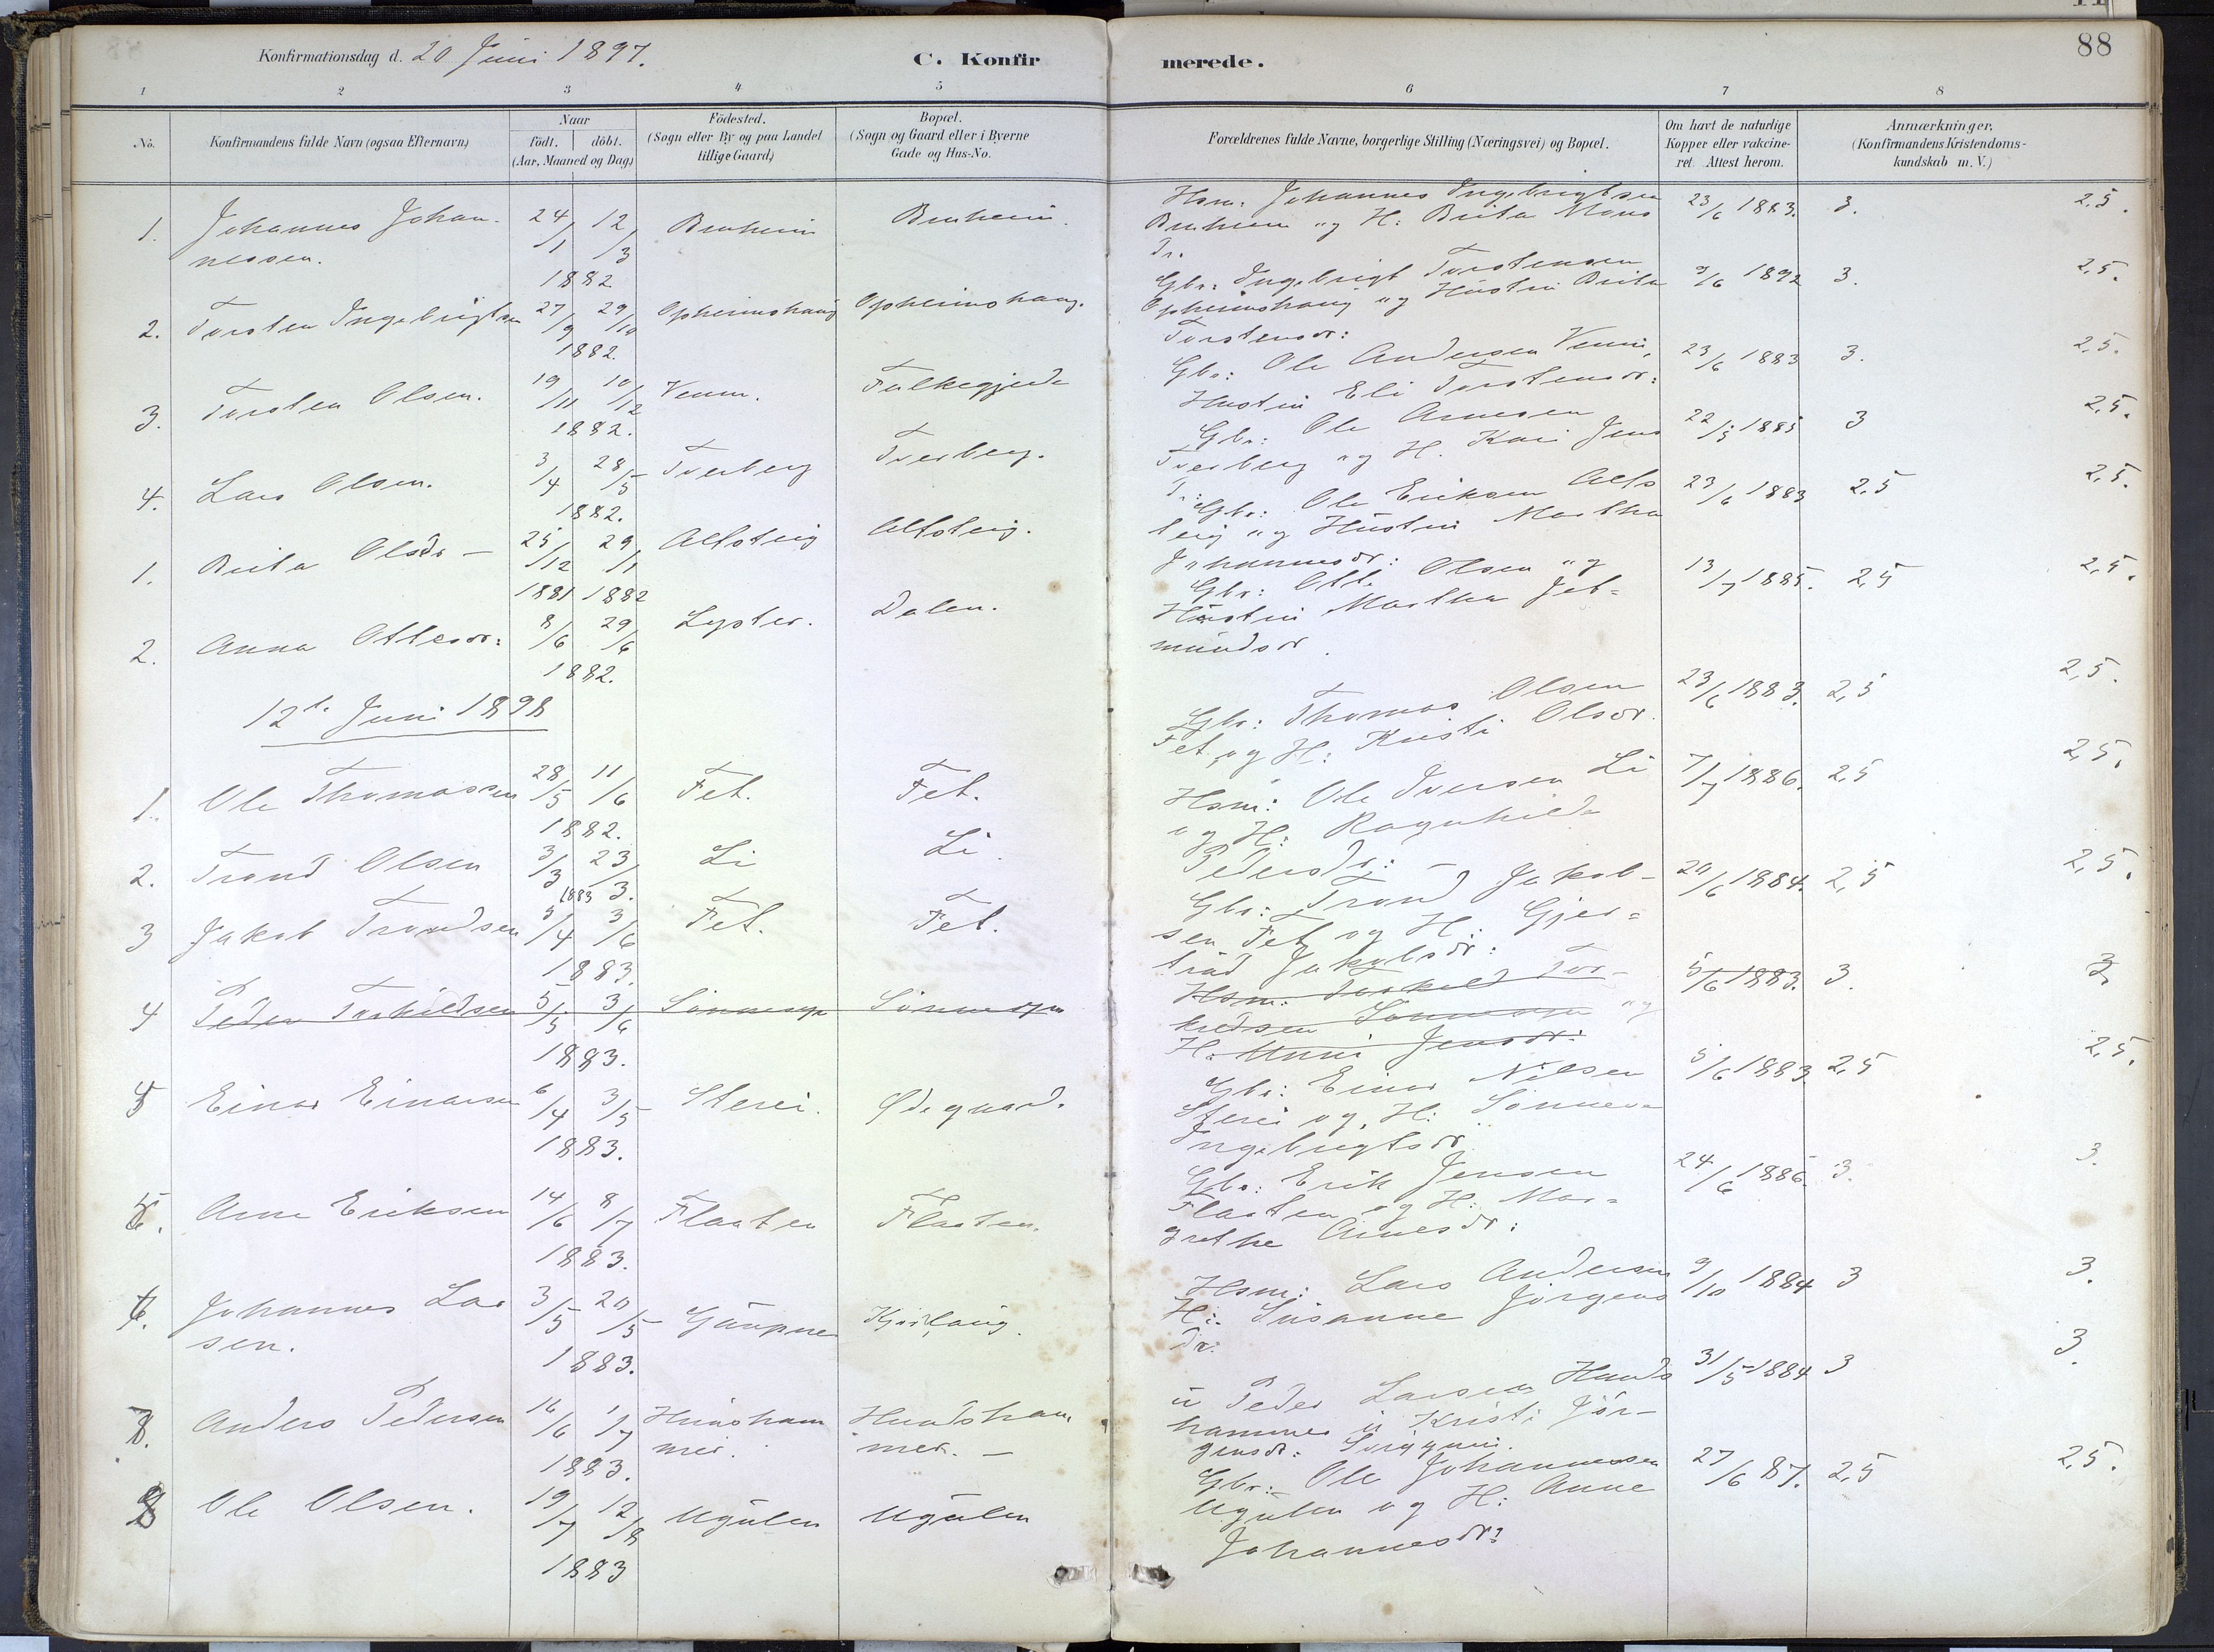 88
Konfirmationsdag d. 20 Juni 1897.
C. Konfirmerede.
1 2 3 4 5 6 7 8
No.
Konfirmandens fulde Navn (ogsaa Efternavn)
Naar
födt. döbt.
(Aar, Maaned og Dag)
Födested.
(Sogn eller By og paa Landet
tillige Gaard.)
Bopæl.
(Sogn og Gaard eller i Byerne
Gade og Hus-No.
Forældrenes fulde Navne, borgerlige Stilling (Næringsvei) og Bopæl.
Om havt de naturlige
Kopper eller vakcine-
ret. Attest herom.
Anmærkninger.
(Konfirmandens Kristendoms-
kundskab m. V.)
1. Johannes Johan- 24/1 12/3
nessen.
1882
Hsm: Johannes Ingebrigtsen 23/6 1883. 3. 2,5.
og H: Brita Mons
Dr.
2. Torsten Ingebrigtsen 27/9 29/10 Opheimshaug Opheimshaug.
1882.
Gbr: Ingebrigt Torstensen 9/6 1892 3. 2,5.
Opheimshaug og Hustru Brita
Torstensdr:
3. Torsten Olsen. 19/11 10/12 Venm. Falkegjerde
1882.
Gbr: Ole Andersen 23/6 1883 3. 2,5.
Hustru Eli Torstensdr:
4. Lars Olsen. 3/4 28/5 Tverberg Tverberg.
1882.
Gbr: Ole Arnesen 22/5 1885 3 2,5.
Tverberg og H. Kari Jens
Dr:
1. Brita Olsdr 25/12 29/1 Alsteig Alsteig.
1881 1882
Gbr: Ole Eriksen 23/6 1883 2,5 2,5.
og Hustru Martha
Johannesdr:
2. Anna Ottesdr: 8/6 29/6 Lyster. Dalen.
1882.
Gbr: Otte Olsen og 13/7 1885. 2,5 2,5.
Hustru Martha Jet-
mundsdr.
12te Juni 1898
1. Ole Thomassen 28/5 11/6 Fet. Fet.
1882.
Gbr: Thomas Olsen 23/6 1883. 2,5 2,5.
Fet og H: Kristi Olsdr.
2. Trond Olsen 3/3 23/3. Li Li.
1883
Hsm: Ole Iversen Li 7/7 1886. 2,5 2,5.
og H: Ragnhild
Pedersdr:
3 Jakob Trondsen 5/4 3/6 Fet. Fet.
1883.
Gbr: Trond Jakob- 20/6 1884. 2,5 2,5.
sen Fet og H: Gjer-
trud Jakobsdr:
4 Peder Torkildsen 5/5 3/6
1883.
Hsm: Torkild Tor- 5/6 1883. 3. 3,
kildsen og
H: Unni Jensdr:
5 Einar Einarsen 6/4 3/5 Sterei. Ødegaard.
1883.
Gbr: Einar Nilsen 5/6 1883 2,5 2,5.
Sterei og H: Sönneva
Ingebrigtsdr
6. Arne Eriksen 14/6 8/7 Flaaten Flaaten.
1883.
Gbr: Erik Jensen 24/6 1886. 3. 3.
Flaaten og H: Mar-
grethe Arnesdr:
Johannes Lar 3/5 20/5 Gaupne
sen.
1883.
Hsm: Lars Andersen 9/10 1884 3 3.
H: Susanne Jörgens
Dr.
Anders Pedersen 16/6 1/7 Hundsham Hundsham
mer. mer. —
1883.
Peder Larsen Hunds 31/5 1884 3 3.
hammer Kristi Jör-
gensdr:
8 Ole Olsen. 19/7 12/8 Ugulen Ugulen
1883
Gbr: Ole Johannessen 27/6 87. 2,5 2,5.
Ugulen og H: Anne
Johannesdr: